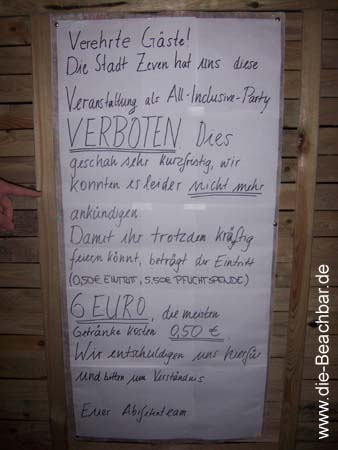 Verehrte Gäste!
Die Stadt Zeven hat uns diese
Veranstaltung als All-Inclusive-Party
VERBOTEN Dies
geschah sehr kurzfristig, wir
konnten es leider nicht mehr
ankündigen.
Damit ihr trotzdem kräftig
feiern könnt, beträgt der Eintritt
(0,50€ EINTRITT, 5,50€ PFLICHTSPENDE)
6 EURO, die meisten
Getränke kosten 0,50 €.
Wir entschuldigen uns hierfür
und bitten um Verständnis
Euer Abifetenteam
www.die-Beachbar.de